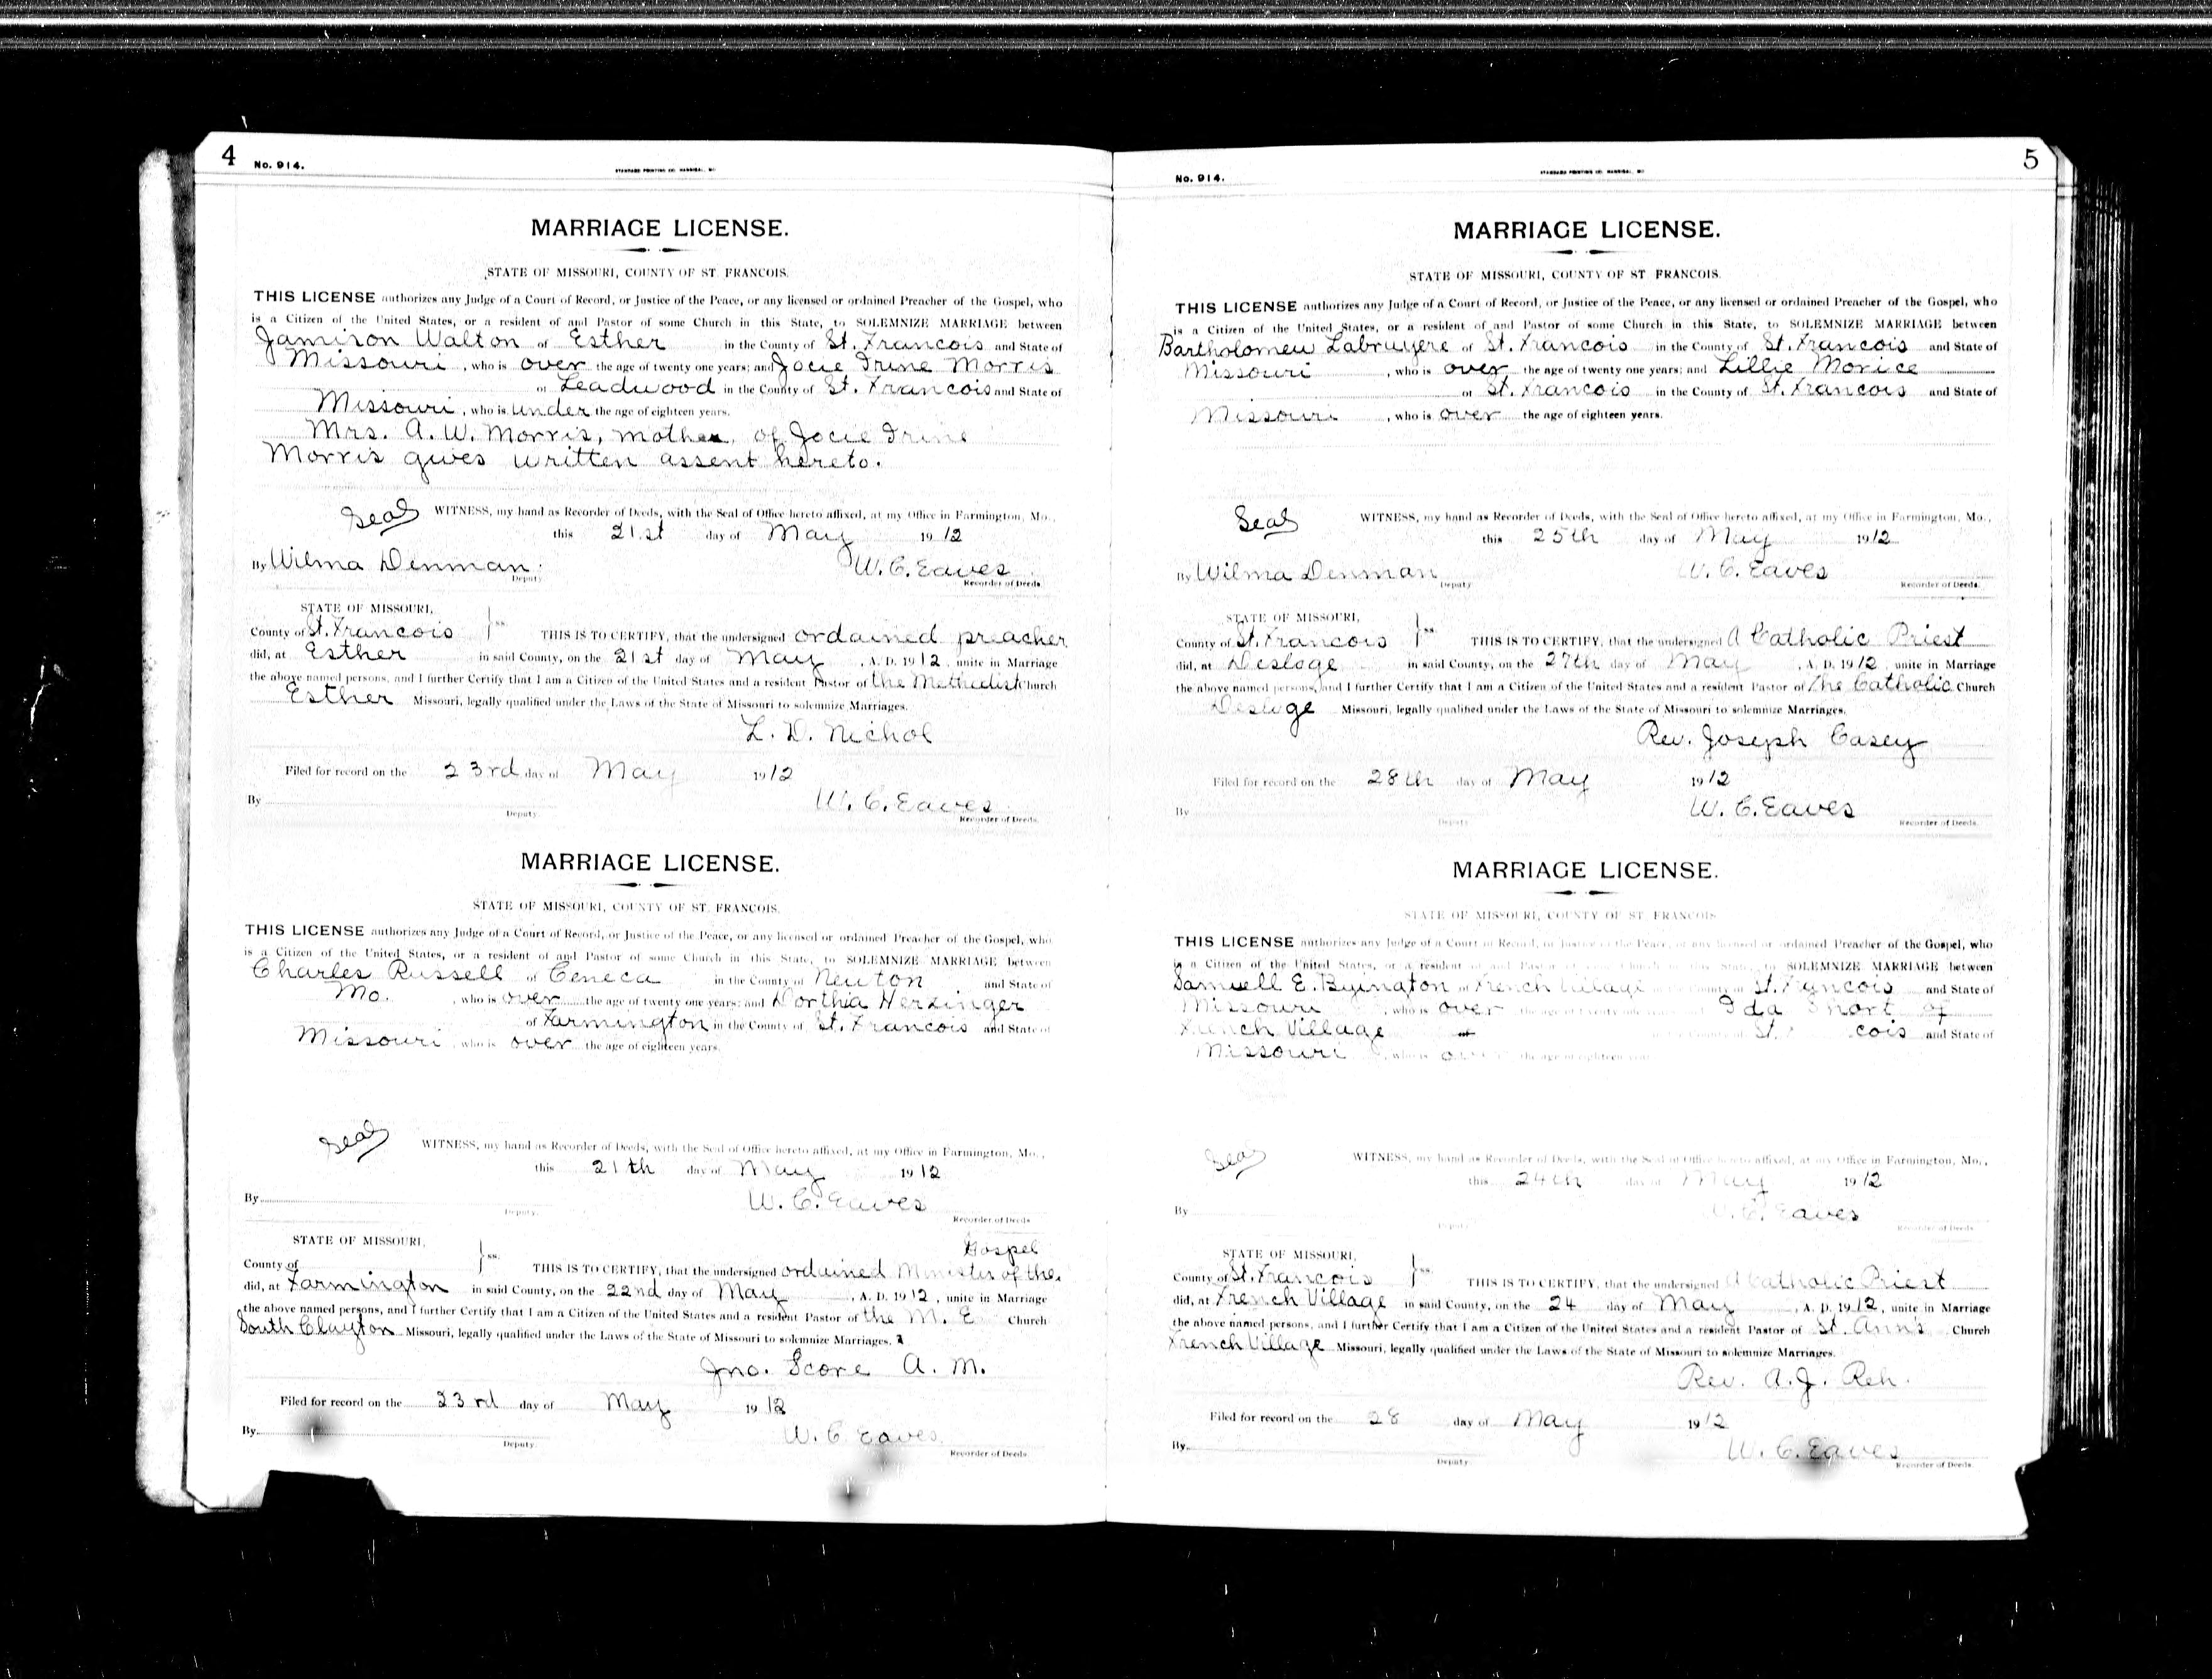 4 No. 914.
STANDARD PRINTING CO. HANNIBAL, MO
MARRIAGE LICENSE.
STATE OF MISSOURI, COUNTY OF ST. FRANCOIS.
THIS LICENSE authorizes any Judge of a Court of Record, or Justice of the Peace, or any licensed or ordained Preacher of the Gospel, who
is a Citizen of the United States, or a resident of and Pastor of some Church in this State, to SOLEMNIZE MARRIAGE between
Jamison Walton of Esther in the County of St. Francois and State of
Missouri, who is over the age of twenty one years; and Jocie Irine Morris
of Leadwood in the County of St. Francois and State of
Missouri, who is under the age of eighteen years.
Mrs. A. W. Morris, mother, of Jocie Irine
Morris gives written assent hereto.
Seal WITNESS, my hand as Recorder of Deeds, with the Seal of Office hereto affixed, at my Office in Farmington, Mo.,
this 21st day of May 1912
By Wilma Denman W. C. Eaves
Deputy Recorder of Deeds.
STATE OF MISSOURI,
County of St. Francois ss. THIS IS TO CERTIFY, that the undersigned ordained preacher
did, at Esther in said County, on the 21st day of May, A. D. 1912, unite in Marriage
the above named persons, and I further Certify that I am a Citizen of the United States and a resident Pastor of the Methodist Church
Esther Missouri, legally qualified under the Laws of the State of Missouri to solemnize Marriages.
L. D. Nichol
Filed for record on the 23rd day of May 1912
By W. C. Eaves
Deputy. Recorder of Deeds.
MARRIAGE LICENSE.
STATE OF MISSOURI, COUNTY OF ST. FRANCOIS.
THIS LICENSE authorizes any Judge of a Court of Record, or Justice of the Peace, or any licensed or ordained Preacher of the Gospel, who
is a Citizen of the United States, or a resident of and Pastor of some Church in this State, to SOLEMNIZE MARRIAGE between
Charles Russell of Ceneca in the County of Newton and State of
Mo., who is over the age of twenty one years; and Dorthia Herzinger
of Farmington in the County of St. Francois and State of
Missouri, who is over the age of eighteen years.
Seal WITNESS, my hand as Recorder of Deeds, with the Seal of Office hereto affixed, at my Office in Farmington, Mo.,
this 21th day of May 1912
By W. C. Eaves
Deputy. Recorder of Deeds
STATE OF MISSOURI, Gospel
County of ss. THIS IS TO CERTIFY, that the undersigned ordained Minister of the
did, at Farmington in said County, on the 22nd day of May, A. D. 1912, unite in Marriage
the above named persons, and I further Certify that I am a Citizen of the United States and a resident Pastor of the M. E Church
South Clayton Missouri, legally qualified under the Laws of the State of Missouri to solemnize Marriages.
Jno. Score A. M.
Filed for record on the 23rd day of May 1912
By W. C Eaves
Deputy. Recorder of Deeds
No. 914. 5
STANDARD PRINTING CO. HANNIBAL, MO
MARRIAGE LICENSE.
STATE OF MISSOURI, COUNTY OF ST. FRANCOIS.
THIS LICENSE authorizes any Judge of a Court of Record, or Justice of the Peace, or any licensed or ordained Preacher of the Gospel, who
is a Citizen of the United States, or a resident of and Pastor of some Church in this State, to SOLEMNIZE MARRIAGE between
Bartholomew Labruyere of St. Francois in the County of St. Francois and State of
Missouri, who is over the age of twenty one years; and Lillie Morice
of St. Francois in the County of St. Francois and State of
Missouri, who is over the age of eighteen years.
Seal WITNESS, my hand as Recorder of Deeds, with the Seal of Office hereto affixed, at my Office in Farmington, Mo.,
this 25th day of May 1912
By Wilma Denman W. C. Eaves
Deputy Recorder of Deeds.
STATE OF MISSOURI,
County of St. Francois ss. THIS IS TO CERTIFY, that the undersigned A Catholic Priest
did, at Desloge in said County, on the 27th day of May, A. D. 1912, unite in Marriage
the above named persons, and I further Certify that I am a Citizen of the United States and a resident Pastor of The Catholic Church
Desloge Missouri, legally qualified under the Laws of the State of Missouri to solemnize Marriages.
Rev. Joseph Casey
Filed for record on the 28th day of May 1912
By W. C. Eaves
Deputy Recorder of Deeds.
MARRIAGE LICENSE.
STATE OF MISSOURI, COUNTY OF ST. FRANCOIS
THIS LICENSE authorizes any Judge of a Court of Record, or Justice of the Peace, or any licensed or ordained Preacher of the Gospel, who
is a Citizen of the United States, or a resident of and Pastor of some Church in this State, to SOLEMNIZE MARRIAGE between
Samuell E. Byington of French Village St. Francois and State of
Missouri, who is over the age of twenty one Ida Short of
French Village St. cois and State of
Missouri, who is the age of eighteen
Seal WITNESS, my hand as Recorder of Deeds, with the Seal of Office hereto affixed, at my Office in Farmington, Mo.,
this 24th day of May 1912
By W. C. Eaves
Deputy Recorder of Deeds
STATE OF MISSOURI,
County of St. Francois ss. THIS IS TO CERTIFY, that the undersigned A Catholic Priest
did, at French Village in said County, on the 24 day of May, A. D. 1912, unite in Marriage
the above named persons, and I further Certify that I am a Citizen of the United States and a resident Pastor of St. Ann's Church
French Village Missouri, legally qualified under the Laws of the State of Missouri to solemnize Marriages.
Rev. A. J. Reh.
Filed for record on the 28 day of May 1912
By W. C. Eaves
Deputy. Recorder of Deeds.